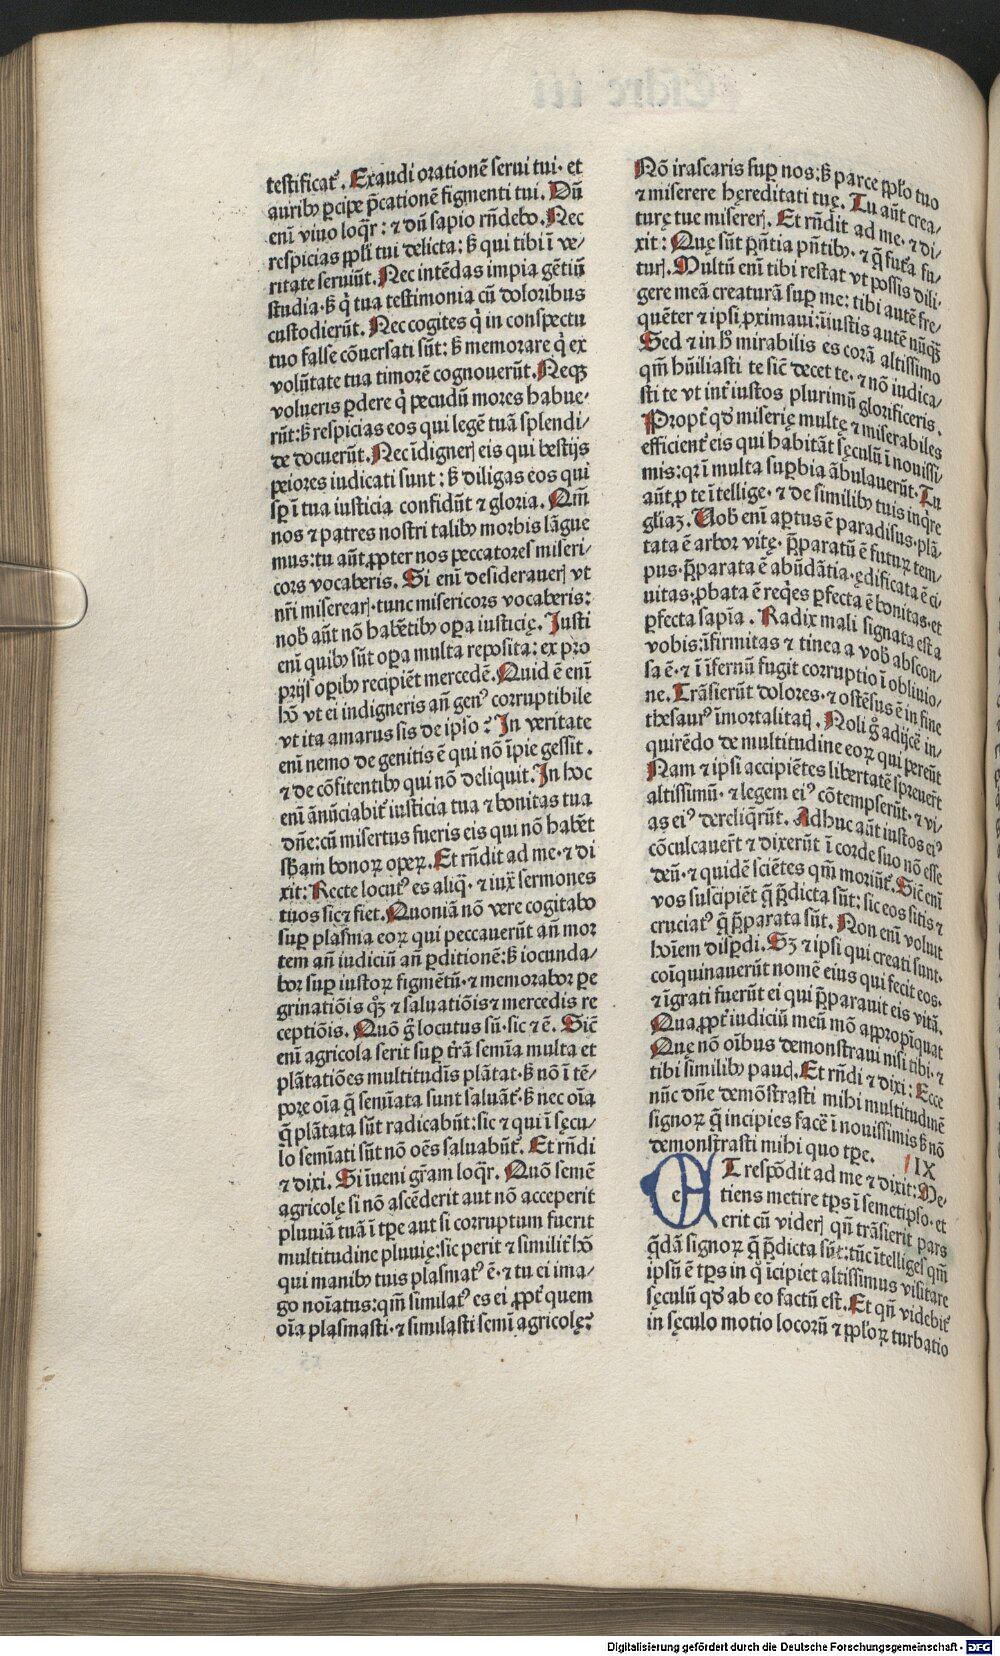 testificat᷑. Exaudi orationē serui tui· et
auribꝫ ꝑcipe p̄cationē figmenti tui. Dū
eni viuo loqr̄: ⁊ dū sapio rn̄debo. Nec
respicias ppl̄i tui delicta: sꝫ qui tibi ī ve/
ritate seruiūt. Nec intēdas impia gētiū
studia· sꝫ q̇ tua testimonia cū doloribus
custodierūt. Nec cogites q̇ in conspectu
tuo false cōuersati sūt: sꝫ memorare q̇ ex
volūtate tua timorē cognouerūt. Neqꝫ
volueris ꝑdere q̇ pecudū mores habue-
rūt: sꝫ respicias eos qui legē tuā splendi/
de docuerūt. Nec īdignerꝭ eis qui bestijs
peiores iudicati sunt: sꝫ diligas eos qui
sꝑ ī tua iusticia confidūt ⁊ gloria. Qm̄
nos ⁊ patres nostri talibꝫ morbis lāgue
mus: tu aūt ꝓpter nos peccatores miseri/
cors vocaberis. Si eni desiderauerꝭ vt
nr̄i miserearꝭ· tunc misericors vocaberis:
nob̄ aūt nō habētibꝫ oꝑa iusticię. Justi
eni quibꝫ sūt oꝑa multa reposita: ex pro
prijs oꝑibꝫ recipiēt mercedē. Quid ē eni
hō vt ei indigneris aū gen⁹ corruptibile
vt ita amarus sis de ipso? In veritate
eni nemo de genitis ē qui nō īpie gessit.
⁊ de cōfitentibꝫ qui nō deliquit. In hoc
eni ānūciabit᷑ iusticia tua ⁊ bonitas tua
dn̄e: cū misertus fueris eis qui nō habēt
sb̄am bonoꝝ opeꝝ. Et rn̄dit ad me· ⁊ di
xit: Recte locut⁹ es aliq̄· ⁊ iuꝟ sermones
tuos sic ⁊ fiet. Quoniā nō vere cogitabo
suꝑ plasma eoꝝ qui peccauerūt an̄ mor
tem an̄ iudiciū an̄ ꝑditionē: sꝫ iocunda-
bor suꝑ iustoꝝ figmētū· ⁊ memorabor pe
grinatiōis qꝫ ⁊ saluatiōis ⁊ mercedis re
ceptiōis. Quō g̊ locutus sū· sic ⁊ ē. Sic̄
eni agricola serit suꝑ tr̄ā semīa multa et
plātatiōes multitudīs plātat· sꝫ nō ī tē/
pore oīa q̄ semīata sunt saluāt᷑· sꝫ nec oīa
q̄ plātata sūt radicabūt: sic ⁊ qui ī sęcu/
lo semīati sūt nō oēs saluabūt᷑. Et rn̄di
⁊ dixi. Si īueni gr̄am loqr̄. Quō semē
agricolę si nō ascēderit aut nō acceperit
pluuiā tuā ī tꝑe aut si corruptum fuerit
multitudine pluuię: sic perit ⁊ similit᷑ hō
qui manibꝫ tuis plasmat⁹ ē· ⁊ tu ei ima/
go noīatus: qm̄ similat⁹ es ei ꝓpt᷑ quem
oīa plasmasti· ⁊ similasti semī agricolę?
Nō irascaris suꝑ nos: sꝫ parce ppl̄o tuo
⁊ miserere hęreditati tuę. Tu aūt crea/
turę tue misererꝭ. Et rn̄dit ad me· ⁊ di/
xit: Quę sūt pn̄tia pn̄tibꝫ· ⁊ q̄ fut᷑a fu/
turꝭ. Multū eni tibi restat vt possis dili/
gere meā creaturā suꝑ me: tibi autē fre/
quēter ⁊ ipsi ꝓximaui: iniustis autē nūqꝫ
Sed ⁊ in hͦ mirabilis es corā altissimo
qm̄ hūiliasti te sic̄ decet te· ⁊ nō iudica/
sti te vt int᷑ iustos plurimū glorificeris.
Propt᷑ qd̓ miserię multę ⁊ miserabiles
efficient᷑ eis qui habitāt sęculū ī nouissi/
mis: qꝛ ī multa suꝑbia ābulauerūt. Tu
aūt ꝓ te ītellige· ⁊ de similibꝫ tuis inq̇re
gliaꝫ. Uob̄ eni aꝑtus ē paradisus· plā/
tata ē arbor vitę· p̄paratū ē futuꝝ tem/
pus· p̄parata ē abūdātia· ędificata ē ci/
uitas· ꝓbata ē req̇es ꝑfecta ē bonitas· et
ꝑfecta sapīa. Radix mali signata est a
vobis: īfirmitas ⁊ tinea a vob̄ abscon/
sa ē· ⁊ ī īfernū fugit corruptio ī obliuio/
ne. Trāsierūt dolores· ⁊ ostēsus ē in fine
thesaur⁹ īmortalitatꝭ. Noli g̊ adijcē in/
quirēdo de multitudine eoꝝ qui pereūt
Nam ⁊ ipsi accipiētes libertatē spreuer̄t
altissimū· ⁊ legem ei⁹ cōtempserūt· ⁊ vi/
as ei⁹ dereliq̄rūt. Adhuc aūt iustos ei⁹
cōculcauer̄t ⁊ dixerūt ī corde suo nō esse
deū· ⁊ quidē sciētes qm̄ moriūt᷑. Sic̄ eni
vos suscipiēt q̄ p̄dicta sūt: sic eos sitis ⁊
cruciat⁹ q̄ p̄parata sūt. Non eni voluit
hoīem disꝑdi. Sꝫ ⁊ ipsi qui creati sunt·
coīquinauerūt nomē eius qui fecit eos·
⁊ īgrati fuerūt ei qui p̄parauit eis vitā.
Quaꝓpt᷑ iudiciū meū mō appropīquat
Quę nō oībus demonstraui nisi tibi· ⁊
tibi similibꝫ paucꝭ. Et rn̄di ⁊ dixi: Ecce
nūc dn̄e demōstrasti mihi multitudinē
signoꝝ q̄ incipies facē ī nouissimis sꝫ nō
demonstrasti mihi quo tꝑe. IX
ET respōdit ad me ⁊ dixit: Me-
tiens metire tp̄s ī semetipso· et
erit cū viderꝭ qn̄ trāsierit pars
q̄dā signoꝝ q̄ p̄dicta sūt: tūc ītelliges qm̄
ipsū ē tp̄s in q̊ īcipiet altissimus visitare
sęculū qd̓ ab eo factū est. Et qn̄ videbit᷑
in sęculo motio locorū ⁊ ppl̄oꝝ turbatio
Digitalisierung gefördert durch die Deutsche Forschungsgemeinschaft - DFG